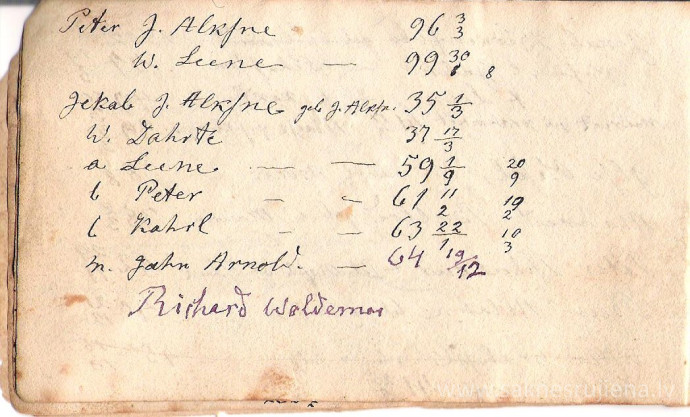 Peter J. Alksne 96 3/3
W. Leene — 99 30/8 8
Jekab J. Alksne geb J. Alksn. 35 1/3
W. Dahrte 37 17/3
a Leene — — 59 1/9 20/9
b Peter - - 61 11/2 19/2
b Kahrl - - 63 22/1 10/3
m. Jahn Arnold. — 64 19/12
Richard Woldemar